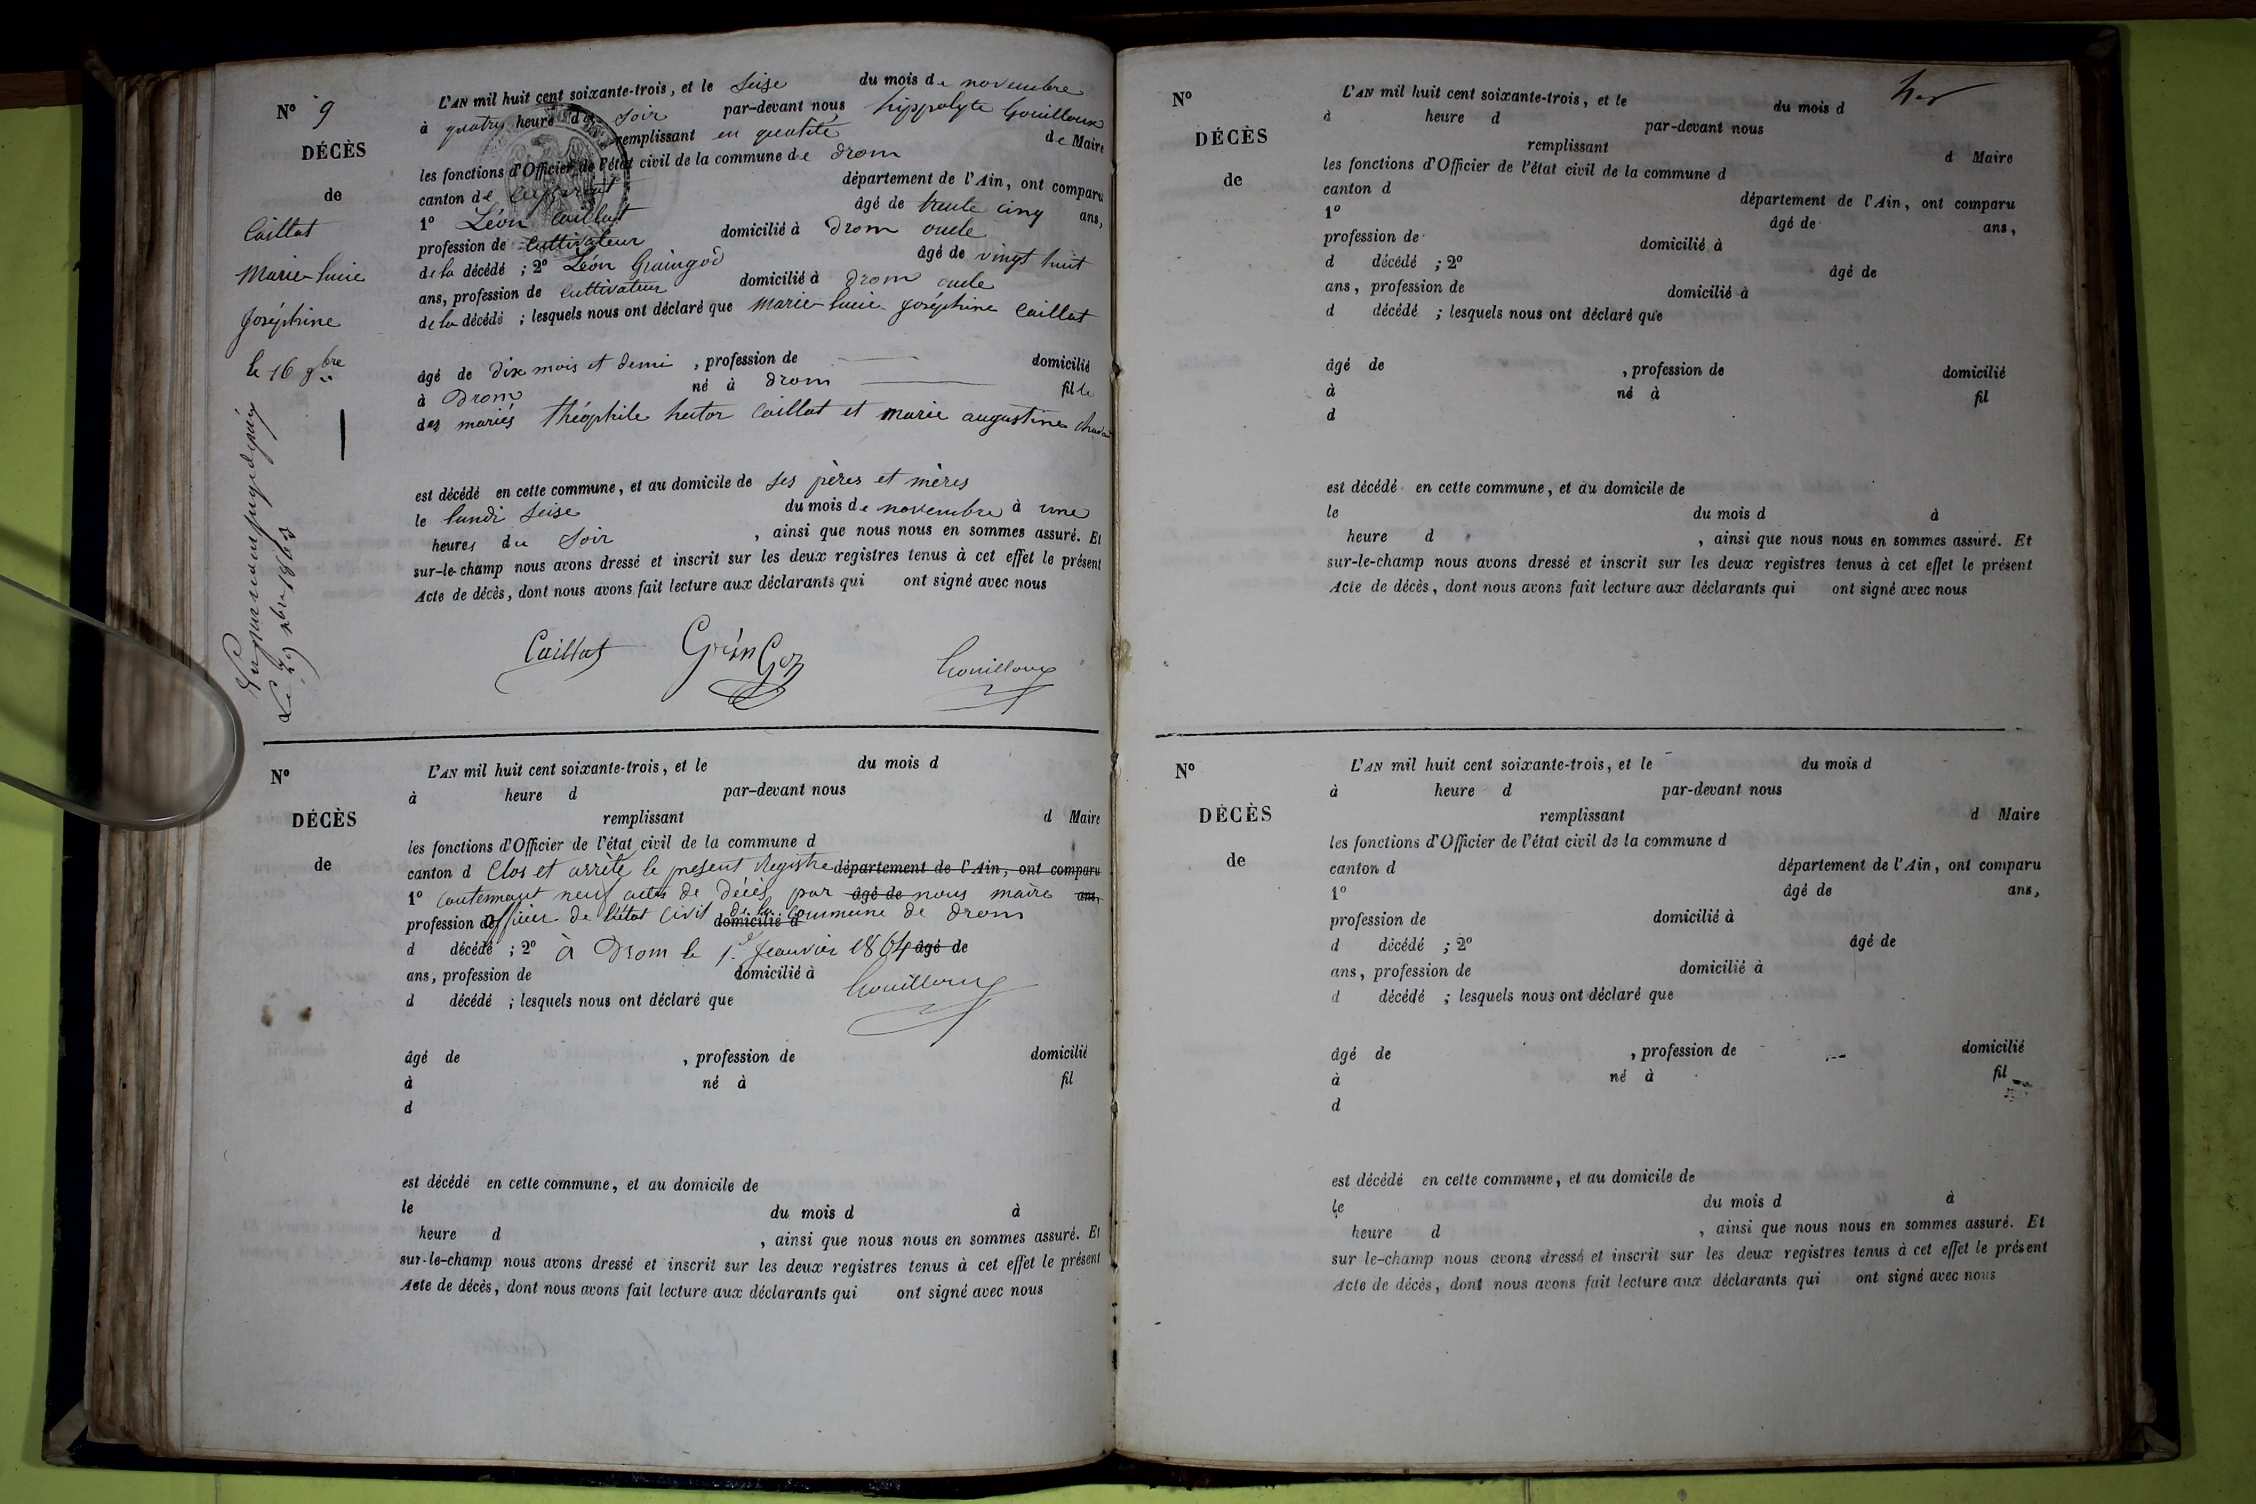 N° 9
DÉCÈS
de
Caillat
Marie-lucie
Joséphine
le 16 9bre
Le 29 xbre 1863
L'AN mil huit cent soixante-trois, et le seise du mois de novembre
à quatre heures du soir par-devant nous hippolyte Gouilloux
remplissant en qualité de Maire
les fonctions d'Officier de l'état civil de la commune de drom
canton de département de l'Ain, ont comparu
1° Léon Caillat âgé de trente cinq ans,
profession de Cultivateur domicilié à Drom oncle
de la décédé ; 2° Léon Graingod âgé de vingt huit
ans, profession de Cultivateur domicilié à Drom oncle
de la décédé ; lesquels nous ont déclaré que Marie-lucie Joséphine Caillat
âgé de dix mois et demi , profession de domicilié
à Drom né à Drom fille
des mariés théophile hector Caillat et marie augustine
est décédé en cette commune, et au domicile de ses pères et mères
le lundi seise du mois de novembre à une
heures du soir , ainsi que nous nous en sommes assuré. Et
sur-le-champ nous avons dressé et inscrit sur les deux registres tenus à cet effet le présent
Acte de décès, dont nous avons fait lecture aux déclarants qui ont signé avec nous
Caillat GrinGoz Gouilloux
N°
DÉCÈS
de
L'AN mil huit cent soixante-trois, et le du mois d
à heure d par-devant nous
remplissant d Maire
les fonctions d'Officier de l'état civil de la commune d
canton d Clos et arrête le present Registre département de l'Ain, ont comparu
1° contenant neuf actes de Décès par âgé de nous maire ans,
profession de officier de l'état Civil de la domicilié à Commune de Drom
d décédé ; 2° à Drom le 1er Jeanvier 1864 âgé de
ans, profession de domicilié à
d décédé ; lesquels nous ont déclaré que Gouilloux
âgé de , profession de domicilié
à né à fil
d
est décédé en cette commune, et au domicile de
le du mois d à
heure d , ainsi que nous nous en sommes assuré. Et
sur-le-champ nous avons dressé et inscrit sur les deux registres tenus à cet effet le présent
Acte de décès, dont nous avons fait lecture aux déclarants qui ont signé avec nous
N°
DÉCÈS
de
L'AN mil huit cent soixante-trois, et le du mois d
à heure d par-devant nous
remplissant d Maire
les fonctions d'Officier de l'état civil de la commune d
canton d département de l'Ain, ont comparu
1° âgé de ans,
profession de domicilié à
d décédé ; 2° âgé de
ans, profession de domicilié à
d décédé ; lesquels nous ont déclaré que
âgé de , profession de domicilié
à né à fil
d
est décédé en cette commune, et au domicile de
le du mois d à
heure d , ainsi que nous nous en sommes assuré. Et
sur-le-champ nous avons dressé et inscrit sur les deux registres tenus à cet effet le présent
Acte de décès, dont nous avons fait lecture aux déclarants qui ont signé avec nous
N°
DÉCÈS
de
L'AN mil huit cent soixante-trois, et le du mois d
à heure d par-devant nous
remplissant d Maire
les fonctions d'Officier de l'état civil de la commune d
canton d département de l'Ain, ont comparu
1° âgé de ans,
profession de domicilié à
d décédé ; 2° âgé de
ans, profession de domicilié à
d décédé ; lesquels nous ont déclaré que
âgé de , profession de domicilié
à né à fil
d
est décédé en cette commune, et au domicile de
le du mois d à
heure d , ainsi que nous nous en sommes assuré. Et
sur le-champ nous avons dressé et inscrit sur les deux registres tenus à cet effet le présent
Acte de décès, dont nous avons fait lecture aux déclarants qui ont signé avec nous